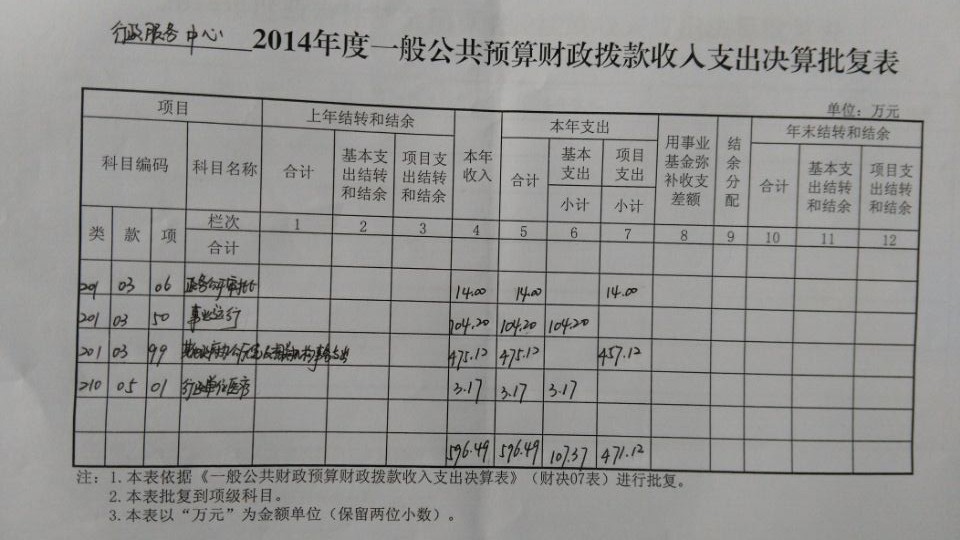 行政服务中心 2014年度一般公共预算财政拨款收入支出决算批复表
单位：万元
项目 上年结转和结余 本年收入 本年支出 用事业基金弥补收支差额 结余分配 年末结转和结余
科目编码 科目名称 合计 基本支出结转和结余 项目支出结转和结余 合计 基本支出 项目支出 合计 基本支出结转和结余 项目支出结转和结余
小计 小计
类 款 项 栏次 1 2 3 4 5 6 7 8 9 10 11 12
合计
201 03 06 政务公开审批 14.00 14.00 14.00
201 03 50 事业运行 104.20 104.20 104.20
201 03 99 其他政府办公厅室及相关机构事务支出 475.12 475.12 457.12
210 05 01 行政单位医疗 3.17 3.17 3.17
596.49 596.49 107.37 471.12
注：1.本表依据《一般公共财政预算财政拨款收入支出决算表》（财决07表）进行批复。
2.本表批复到项级科目。
3.本表以“万元”为金额单位（保留两位小数）。